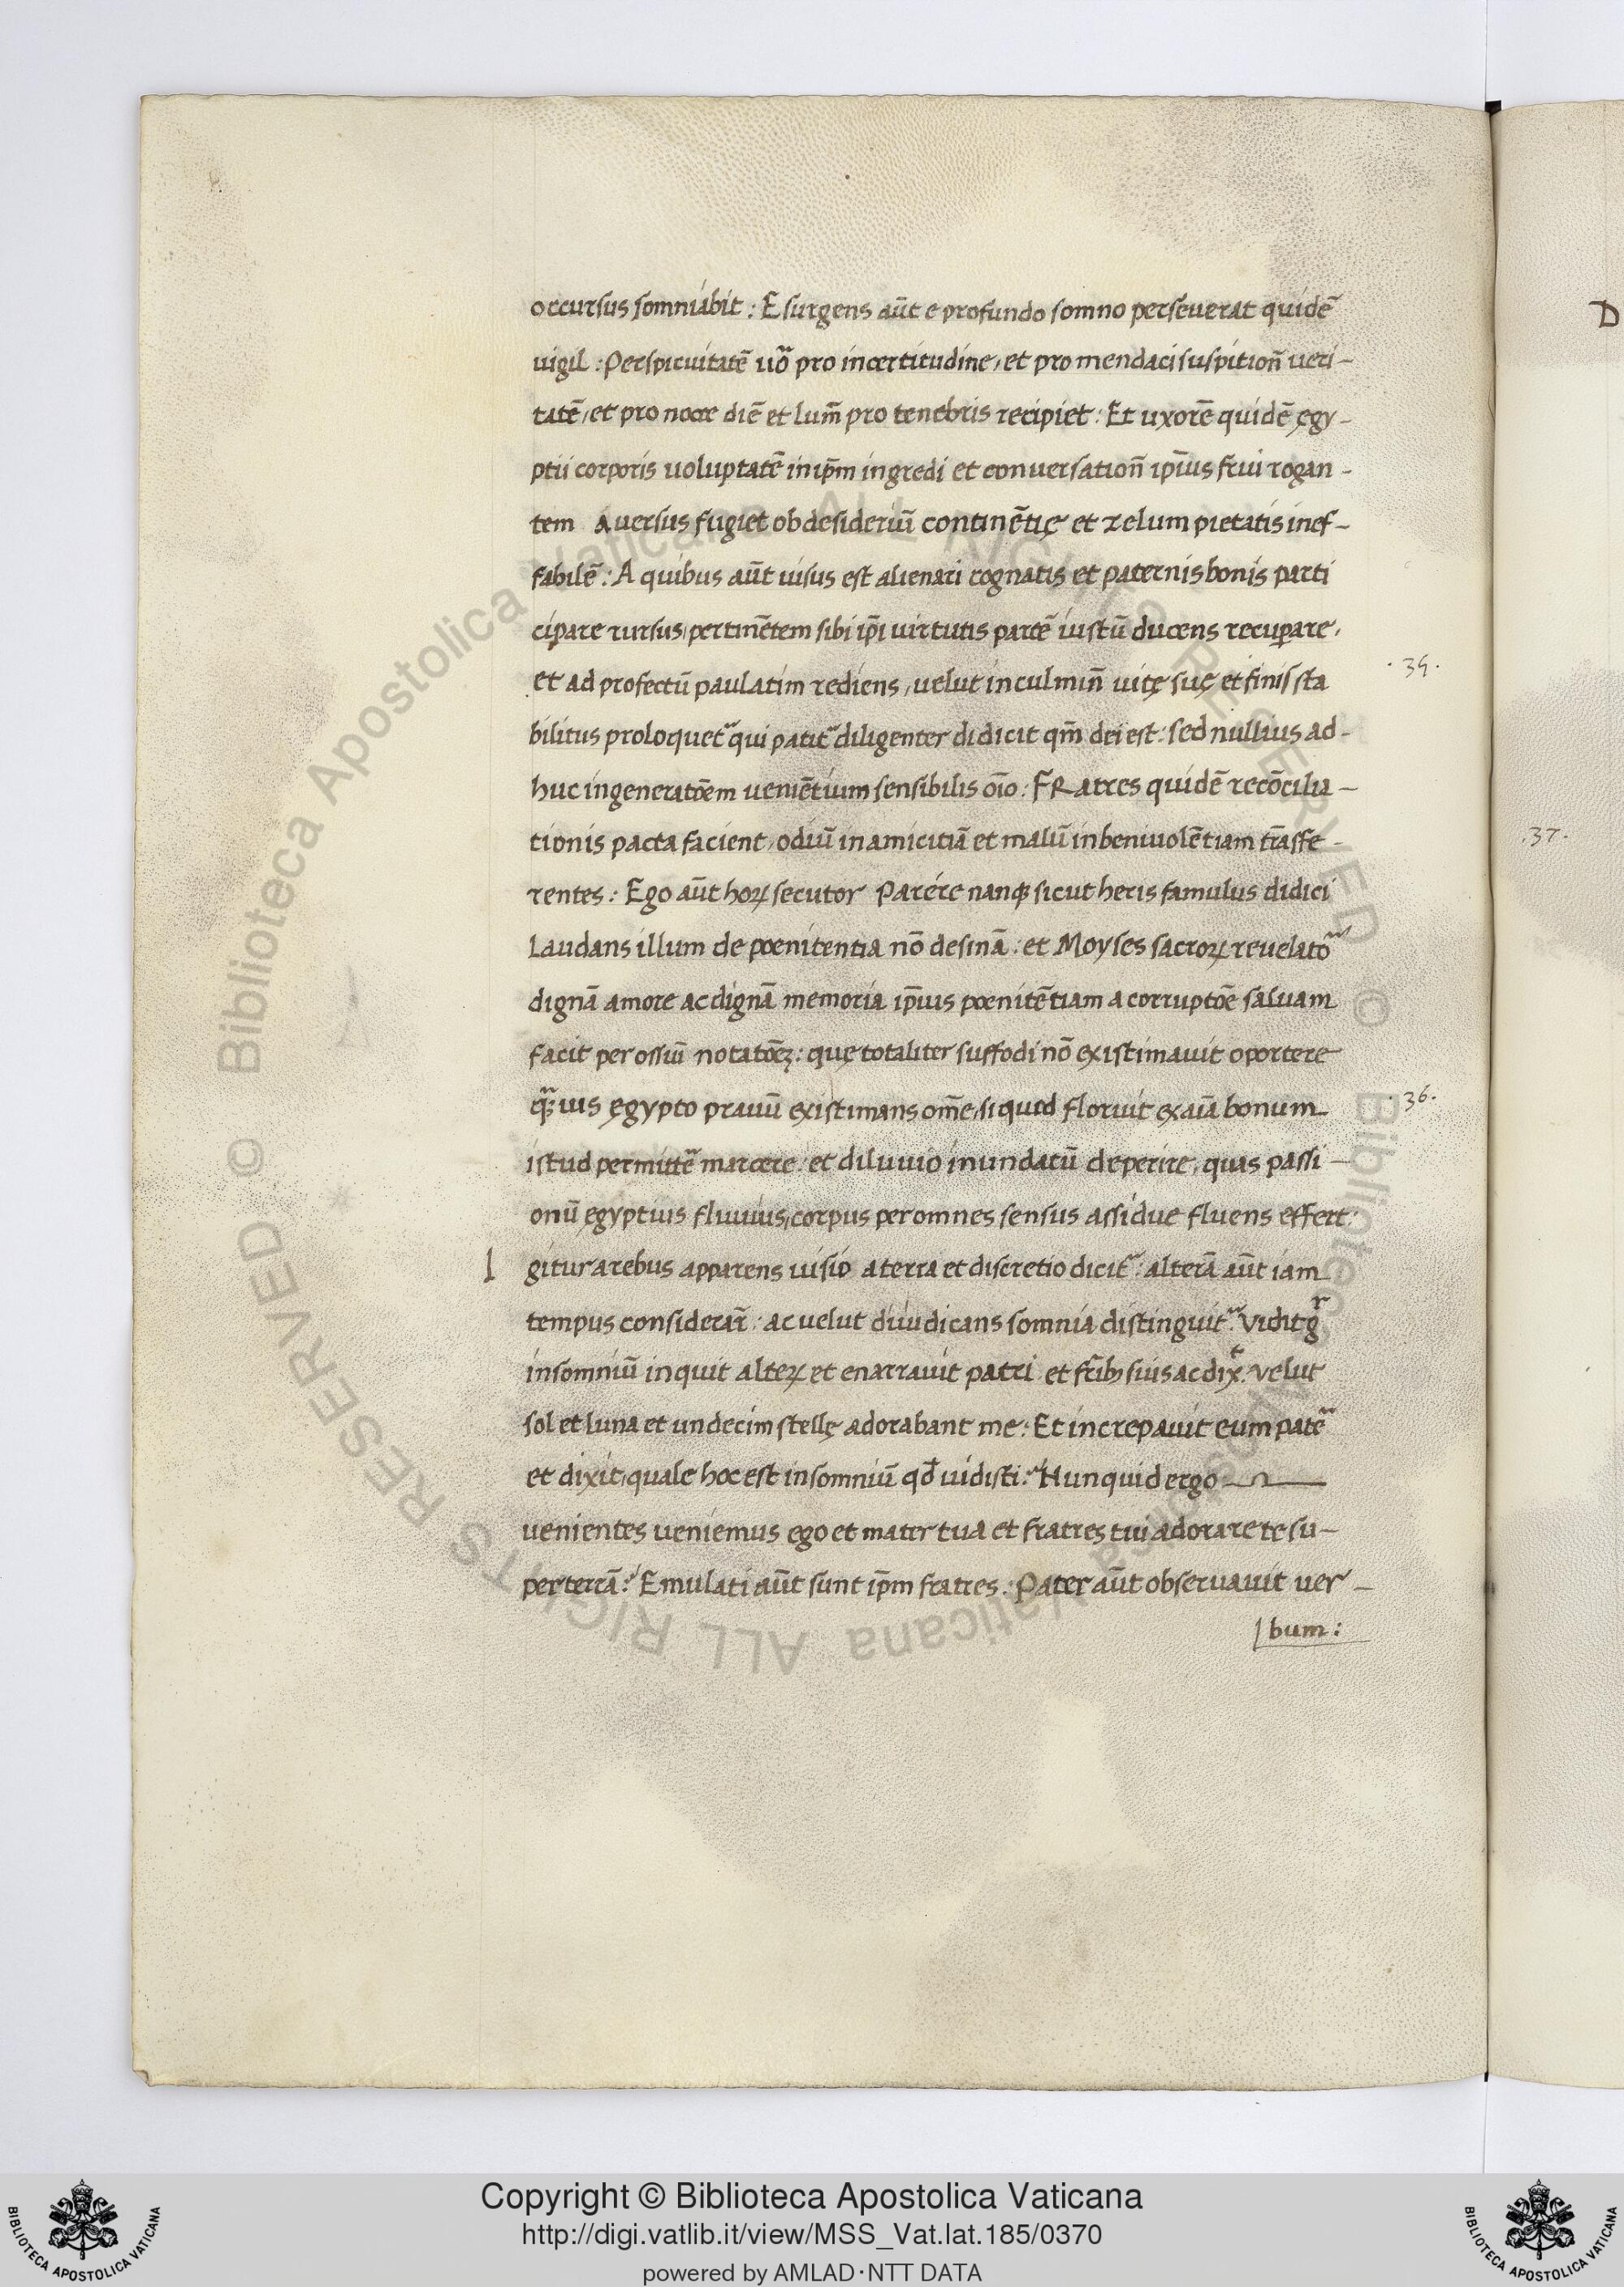 occursus somniabit : Esurgens aūt e profundo somno perseverat quidē
uigil : Perspicuitatē uō pro incertitudine, et pro mendaci suspitioñ ueri-
tatē, et pro nocte diē et lum̄ pro tenebris recipiet : Et uxorē quidē ęgy-
ptii corporis uoluptatē in ip̄m ingredi et conuersatioñ ip̄ius frui rogan-
tem Auersus fugiet ob desideriū continētię et zelum pietatis inef-
fabilē : A quibus aūt uisus est alienari cognatis et paternis bonis parti
cipare rursus, pertinētem sibi ip̄i uirtutis partē iustū ducens recuꝑare,
et ad profectū paulatim rediens, uelut in culmiñ uitę suę et finis sta
.35.
bilitus proloquet᷑ qui patit᷑ diligenter didicit qm̄ dei est : sed nullius ad-
huc in generatōem ueniētium sensibilis oīo : FRatres quidē recōcilia-
tionis pacta facient, odiū in amicitiā et malū in beniuolētiam trāsfe-
rentes : Ego aūt hoꝝ secutor Parere nanqꝫ sicut heris famulus didici
Laudans illum de poenitentia nō desinā : et Moyses sacroꝝ reuelato᷑
dignā amore ac dignā memoria ip̄ius poenitētiam a corruptōe saluam
facit per ossiū notatōeꝫ : quę totaliter suffodi nō existimauit oportere
quāuis ęgypto prauū existimans om̄e, si quod floruit ex aīa bonum
.36.
istud permittē᷑ marcere : et diluuio inundatū deperire, quas passi-
onū ęgyptius fluuius, corpus per omnes sensus assidue fluens effert :
I gitur a rebus apparens uisio a terra et discretio dicit᷑ : alterā aūt iam
tempus considerar̄ : ac uelut diiudicans somnia distinguit᷑ : Vidit gͬ
insomniū inquit alteꝝ et enarrauit patri et fr̄ibꝫ suis ac dixͭ : velut
sol et luna et undecim stellę adorabant me : Et increpauit eum patē᷑
et dixit, quale hoc est insomniū qd̄ uidisti : Nunquid ergo
uenientes ueniemus ego et mater tua et fratres tui adorare te su-
per terrā : Emulati aūt sunt ip̄m fratres : Pater aūt obseruauit uer-
bum :
D
.37.
Biblioteca Apostolica Vaticana ALL RIGHTS RESERVED © Biblioteca Apostolica Vaticana ALL RIGHTS RESERVED ©
Copyright © Biblioteca Apostolica Vaticana
http://digi.vatlib.it/view/MSS_Vat.lat.185/0370
powered by AMLAD·NTT DATA
BIBLIOTECA APOSTOLICA VATICANA
BIBLIOTECA APOSTOLICA VATICANA